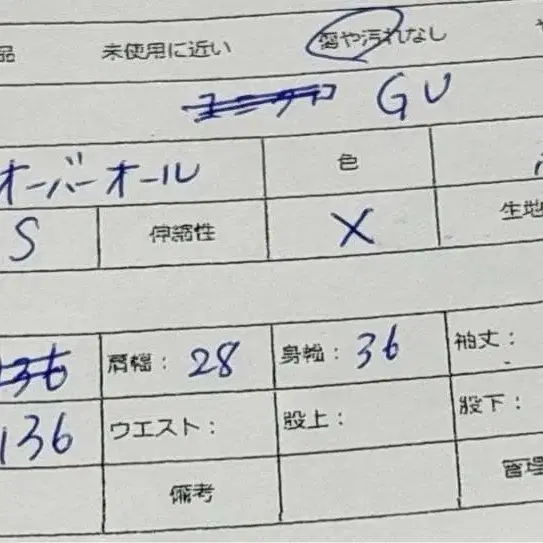 品 未使用に近い 傷や汚れなし
GU
オーバーオール 色
S 伸縮性 X 生地
36 肩幅： 28 身幅： 36 袖丈：
136 ウエスト： 股上： 股下：
備考 管理